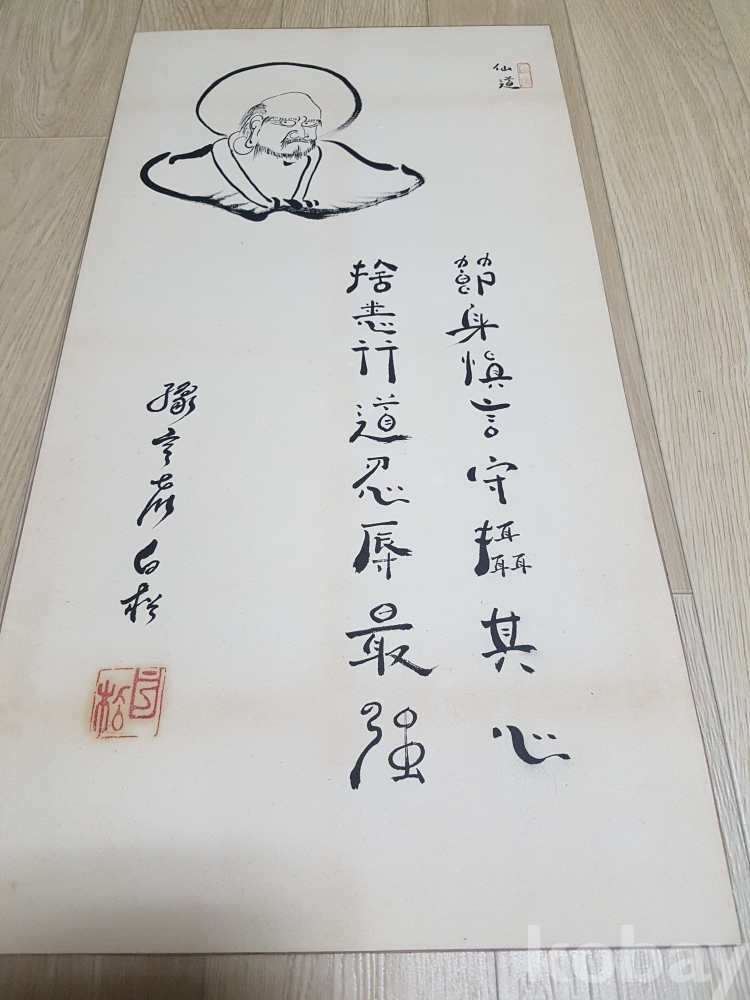 仙道
節身愼言守攝其心
捨恚行道忍辱最強
白松
白松
kobay